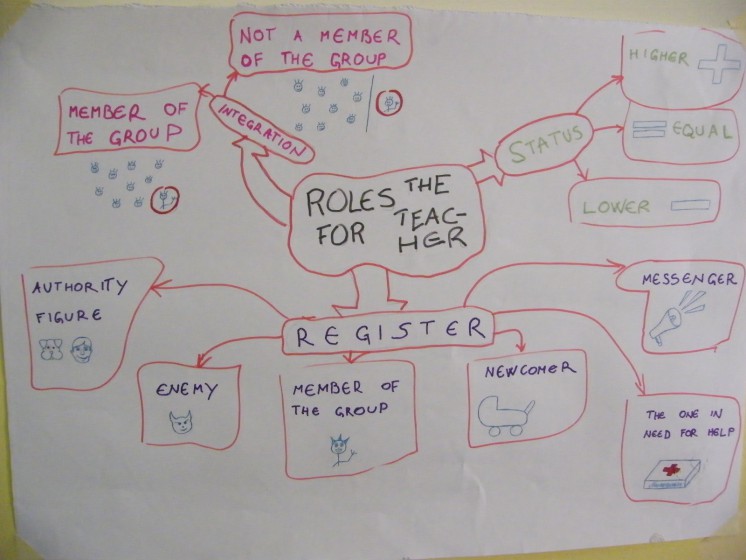 NOT A MEMBER
OF THE GROUP
MEMBER OF
THE GROUP
INTEGRATION
HIGHER
EQUAL
LOWER
STATUS
ROLES THE
FOR TEAC-
HER
REGISTER
AUTHORITY
FIGURE
ENEMY
MEMBER OF
THE GROUP
NEWCOMER
MESSENGER
THE ONE IN
NEED FOR HELP